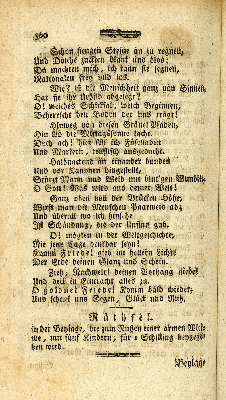 360
Schon fiengen Steine an zu regnen,
Und Dolche zuckten blank und bloß;
Da machten mich, ich kann sie segnen,
Nationalen frey und los.
Wie? ist die Menschheit ganz von Sinnen,
Hat sie ihr Antlitz abgelegt?
O! welches Schicksal, welch Beginnen,
Beherrscht den Boden der uns trägt!
Hinweg von diesen Gräuel Pfaden,
Hin wo die Mittagssonne lache.
Doch ach! hier seh ich Füseladen
Und Martern, teuflisch ausgedacht.
Halbnackend an einander bunden
Und vor Kanonen hingestellt,
Stürzt Mann und Weib mit blut'gen Wunden,
O Gott! Was wird aus deiner Welt!
Ganz oben von der Brücken Höhe,
Wirft man der Menschen Paarweis' ab
Und überall wo ich hinsehe
Ist Schändung, die der Unschuld
O! möchten in der Weltgeschichte,
Nie jene Tage denkbar seyn!
Komm Friede! gieb im hellern Lichte
Der Erde deinen Glanz und Schein.
Zieh, Nachwelt! deinen Vorhang nieder
Und dein in Eintracht alles zu.
O goldner Friede! Komm bald wieder,
Und schenk uns Segen, Glück und Ruh.
Räthsel.
in der Beylage, die zum Nutzen einer armen Witt-
we, mit fünf Kindern, für 1 Schilling beygege-
ben wird.
Beylage